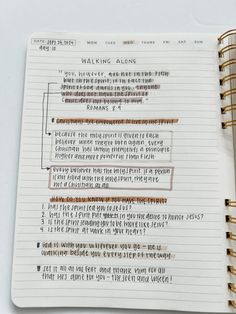 DATE: SEPT 24, 2024 MON TUES WED THURS FRI SAT SUN
day: 10
WALKING ALONG
"you, however, are not in the flesh
but in the spirit, if in fact the
spirit of God dwells in you. Anyone
who does not have the spirit of
Christ does not belong to him."
ROMANS 8:9
Christians are empowered to live in the spirit
because the holy spirit is given to each
believer when they're born again, every
Christian has within themselves a principle
higher and more powerful than flesh
every believer has the holy spirit. If a person
is not filled with the holy spirit, they are
not a Christian at all
HOW DO YOU KNOW IF YOU HAVE THE SPIRIT?
1. has the spirit led you to Jesus?
2. has the spirit put in you the desire to honor Jesus?
3. is the spirit leading you to be more like Jesus?
4. is the spirit at work in your heart?
God is with you wherever you go - he is
walking before you every step of the way
sit at his feet and thank him for all
that he's done for you - the seen and unseen!